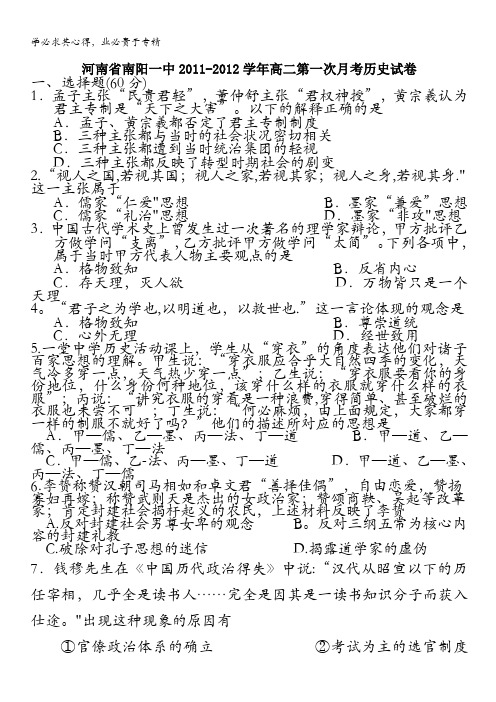 学必求其心得，业必贵于专精
河南省南阳一中2011-2012学年高二第一次月考历史试卷
一、选择题(60分)
1．孟子主张“民贵君轻”，董仲舒主张“君权神授”，黄宗羲认为
君主专制是“天下之大害”。以下的解释正确的是
A．孟子、黄宗羲都否定了君主专制制度
B．三种主张都与当时的社会状况密切相关
C．三种主张都遭到当时统治集团的轻视
D．三种主张都反映了转型时期社会的剧变
2.“视人之国,若视其国；视人之家,若视其家；视人之身,若视其身."
这一主张属于
A．儒家“仁爱"思想 B．墨家“兼爱”思想
C．儒家“礼治"思想 D．墨家“非攻"思想
3．中国古代学术史上曾发生过一次著名的理学家辩论，甲方批评乙
方做学问“支离”,乙方批评甲方做学问“太简”。下列各项中，
属于当时甲方代表人物主要观点的是
A．格物致知 B．反省内心
C．存天理，灭人欲 D．万物皆只是一个
天理
4。“君子之为学也,以明道也，以救世也.”这一言论体现的观念是
A．格物致知 B．尊崇道统
C．心外无理 D．经世致用
5.一堂中学历史活动课上，学生从“穿衣”的角度表达他们对诸子
百家思想的理解。甲生说：“穿衣服应合乎大自然四季的变化，天
气冷多穿一点，天气热少穿一点”；乙生说：“穿衣服要看你的身
份地位，什么身份何种地位，该穿什么样的衣服就穿什么样的衣
服”；丙说：“讲究衣服的穿着是一种浪费,穿得简单、甚至破烂的
衣服也未尝不可”；丁生说：“何必麻烦，由上面规定，大家都穿
一样的制服不就好了吗？”他们的描述所对应的思想是
A．甲—儒、乙—墨、丙—法、丁—道 B．甲—道、乙—
儒、丙—墨、丁—法
C．甲—儒、乙-法、丙—墨、丁—道 D．甲—道、乙—墨、
丙—法、丁—儒
6.李贽称赞汉朝司马相如和卓文君“善择佳偶”，自由恋爱，赞扬
寡妇再嫁；称赞武则天是杰出的女政治家；赞颂商鞅、吴起等改革
家；肯定封建社会揭杆起义的农民，上述材料反映了李贽
A.反对封建社会男尊女卑的观念 B。反对三纲五常为核心内
容的封建礼教
C.破除对孔子思想的迷信 D.揭露道学家的虚伪
7．钱穆先生在《中国历代政治得失》中说:“汉代从昭宣以下的历
任宰相，几乎全是读书人……完全是因其是一读书知识分子而获入
仕途。"出现这种现象的原因有
①官僚政治体系的确立 ②考试为主的选官制度